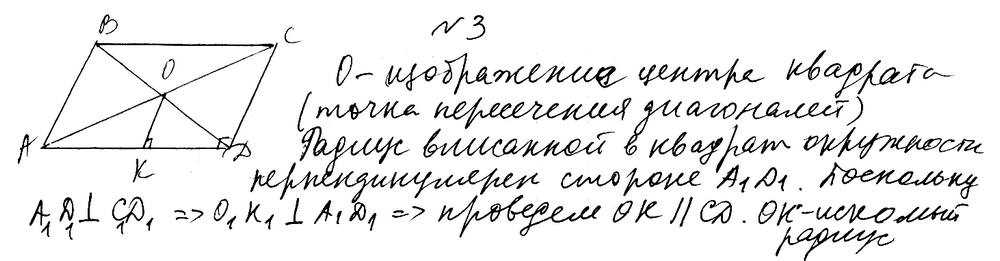 №3
B
C
O
A
K
D
O - изображение центра квадрата
(точка пересечения диагоналей)
Радиус вписанной в квадрат окружности
перпендикулярен стороне A₁D₁. Поскольку
A₁D₁ ⊥ C₁D₁ => O₁K₁ ⊥ A₁D₁ => проведем OK || CD. OK - искомый
радиус